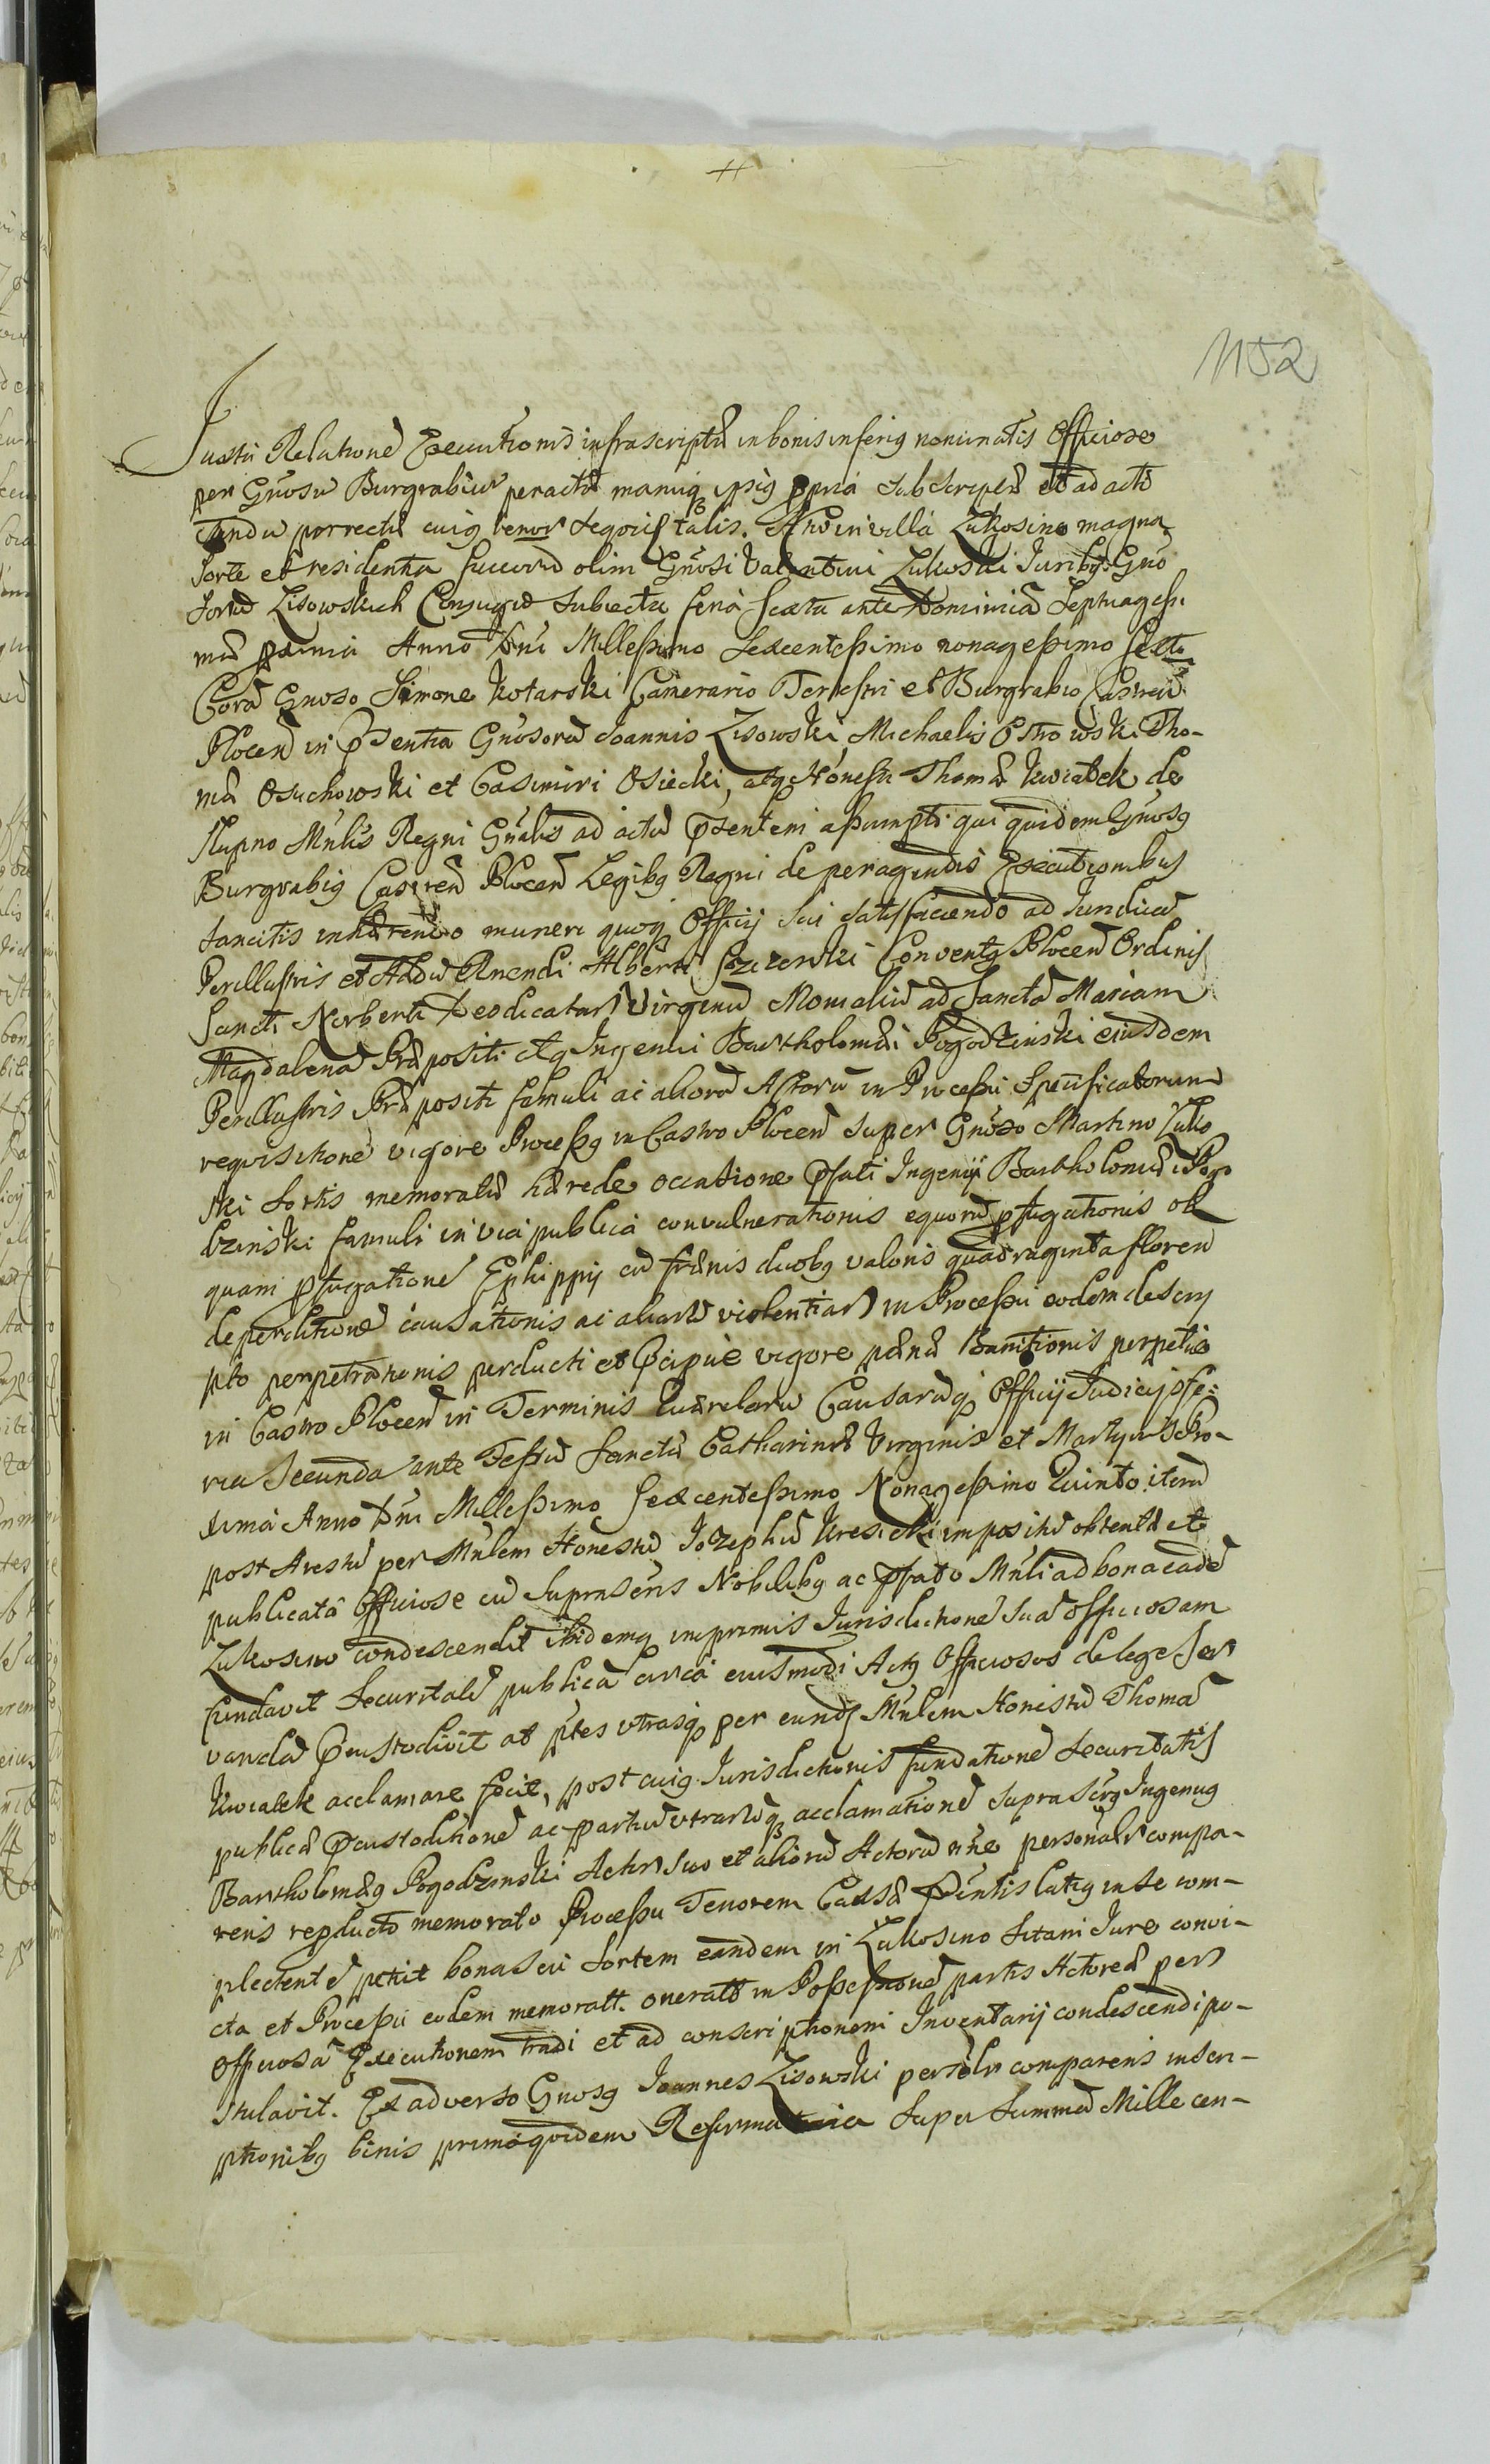 1152
Iuxta Relatione Executionis infrascriptae in bonis inferig nominatis Officiose
per Gnosu Burgrabiu peractae manuq ipsig ppria subscriptae et ad acti
candu porrectae cuig tenor sequit talis. Actu in villa Lukosino magna
sorte et residentia successoru olim Gnosi Valentini Lukoski Iuribg Gno
soru Lisowskich Consugu subiecta feria sexta ante Dominica Septuagesi
mae pxima Anno Dni Millesimo Sexcentesimo nonagesimo sexto
Cora Gnoso Simone Kotarski Camerario Terrestri et Burgrabio Castren
Plocen in Psentia Gnosoru Joannis Lisowski Michaelis Ostrowski Tho-
mae Osuchowski et Casimiri Osiecki, atq Honesti Thomae Kwiatek de
Slupno Mnlis Regni Gnalis ad actu Psentem assumpti qui quidem Gnosg
Burgrabig Castren Plocen Legibg Regni de peragendis Executionibus
sancitis inhaerendo muneri quoq Officij sui satisfaciendo ad Iuridica
Perillustris et Adu Rnendi Alberti Conventg Plocen Ordinis
Sancti Norberti Deo dicataru Virginu Monialiu ad Sancta Mariam
Magdalena Praepositi atq Ingenui Bartholomaei Pogodzinski eiusdem
Perillustris Praepositi famuli ac alioru Actoru in Processu Specificatorum
requisitione vigore Processg in Castro Plocen super Gnoso Martino Luko
ski sortis memoratae haerede occatione Pfati Ingenij Bartholomaei Pogo
dzinski famuli in via publica convulnerationis equoru pfugationis ob
quam pfugatione Ephippij cu fraenis duobg valoris quadraginta floren
deperditione causationis ac aliaru violentiaru in Processu eodem descri
pto perpetrationis perducti et Pcipue vigore paenae Bannitionis perpetuae
in Castro Plocen in Terminis Quaerelaru Causaruq Officij Iudicij fe-
ria secunda ante Festu Sanctae Catharinae Virginis et Martyris Pro-
xima Anno Dni Millesimo Sexcentesimo Nonagesimo Quinto iteru
post Arestu per Mnlem Honestu Iozephu impositu obtentae et
publicata Officiose cu suprasctis Nobilibg ac Pfato Mnli ad bona eade
Lukosino condescendit ibidemq imprimis Iurisdictione sua officiosam
fundavit securitate publica circa eiusmodi Actg Officiosos de lege ser
vanda Pcustodivit ac ptes vtrasq per eundg Mnlem Honestu Thoma
Kwiatek acclamare fecit, post cuig Iurisdictionis fundatione securitatis
publicae Pcustoditione ac partiu vtraruq acclamatione suprasctg Ingenug
Bartholomaeg Pogodzinski Actor suo et alioru Actoru nne personalr compa-
rens reproducto memorato Processu Tenorem Causae Pntis latig in se com-
plectente petiit bona seu sortem eandem in Lukosino sitam Iure convi-
cta et Processu eodem memoratt. onerat in Possessione partis Actoreae per
officiosa Executionem tradi et ad conscriptionem Inventarij condescendi po-
stulavit. Ex adverso Gnosg Joannes Lisowski personlr comparens inscri-
ptionibg binis prima quidem Reformatoria super summa Mille cen-